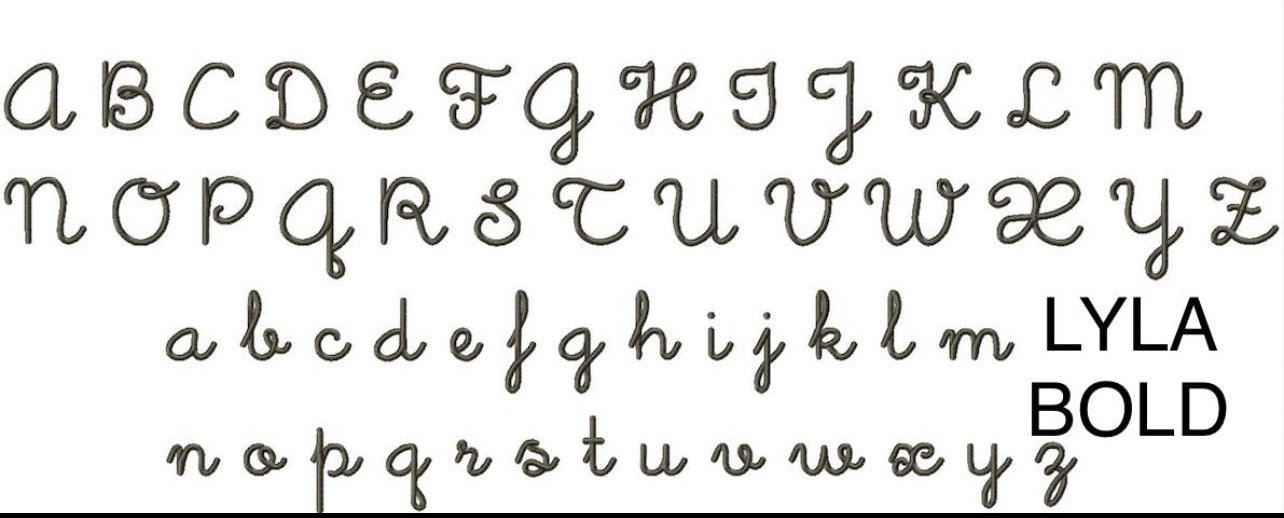 A B C D E F G H I J K L M
N O P Q R S T U V W X Y Z
a b c d e f g h i j k l m
n o p q r s t u v w x y z
LYLA
BOLD